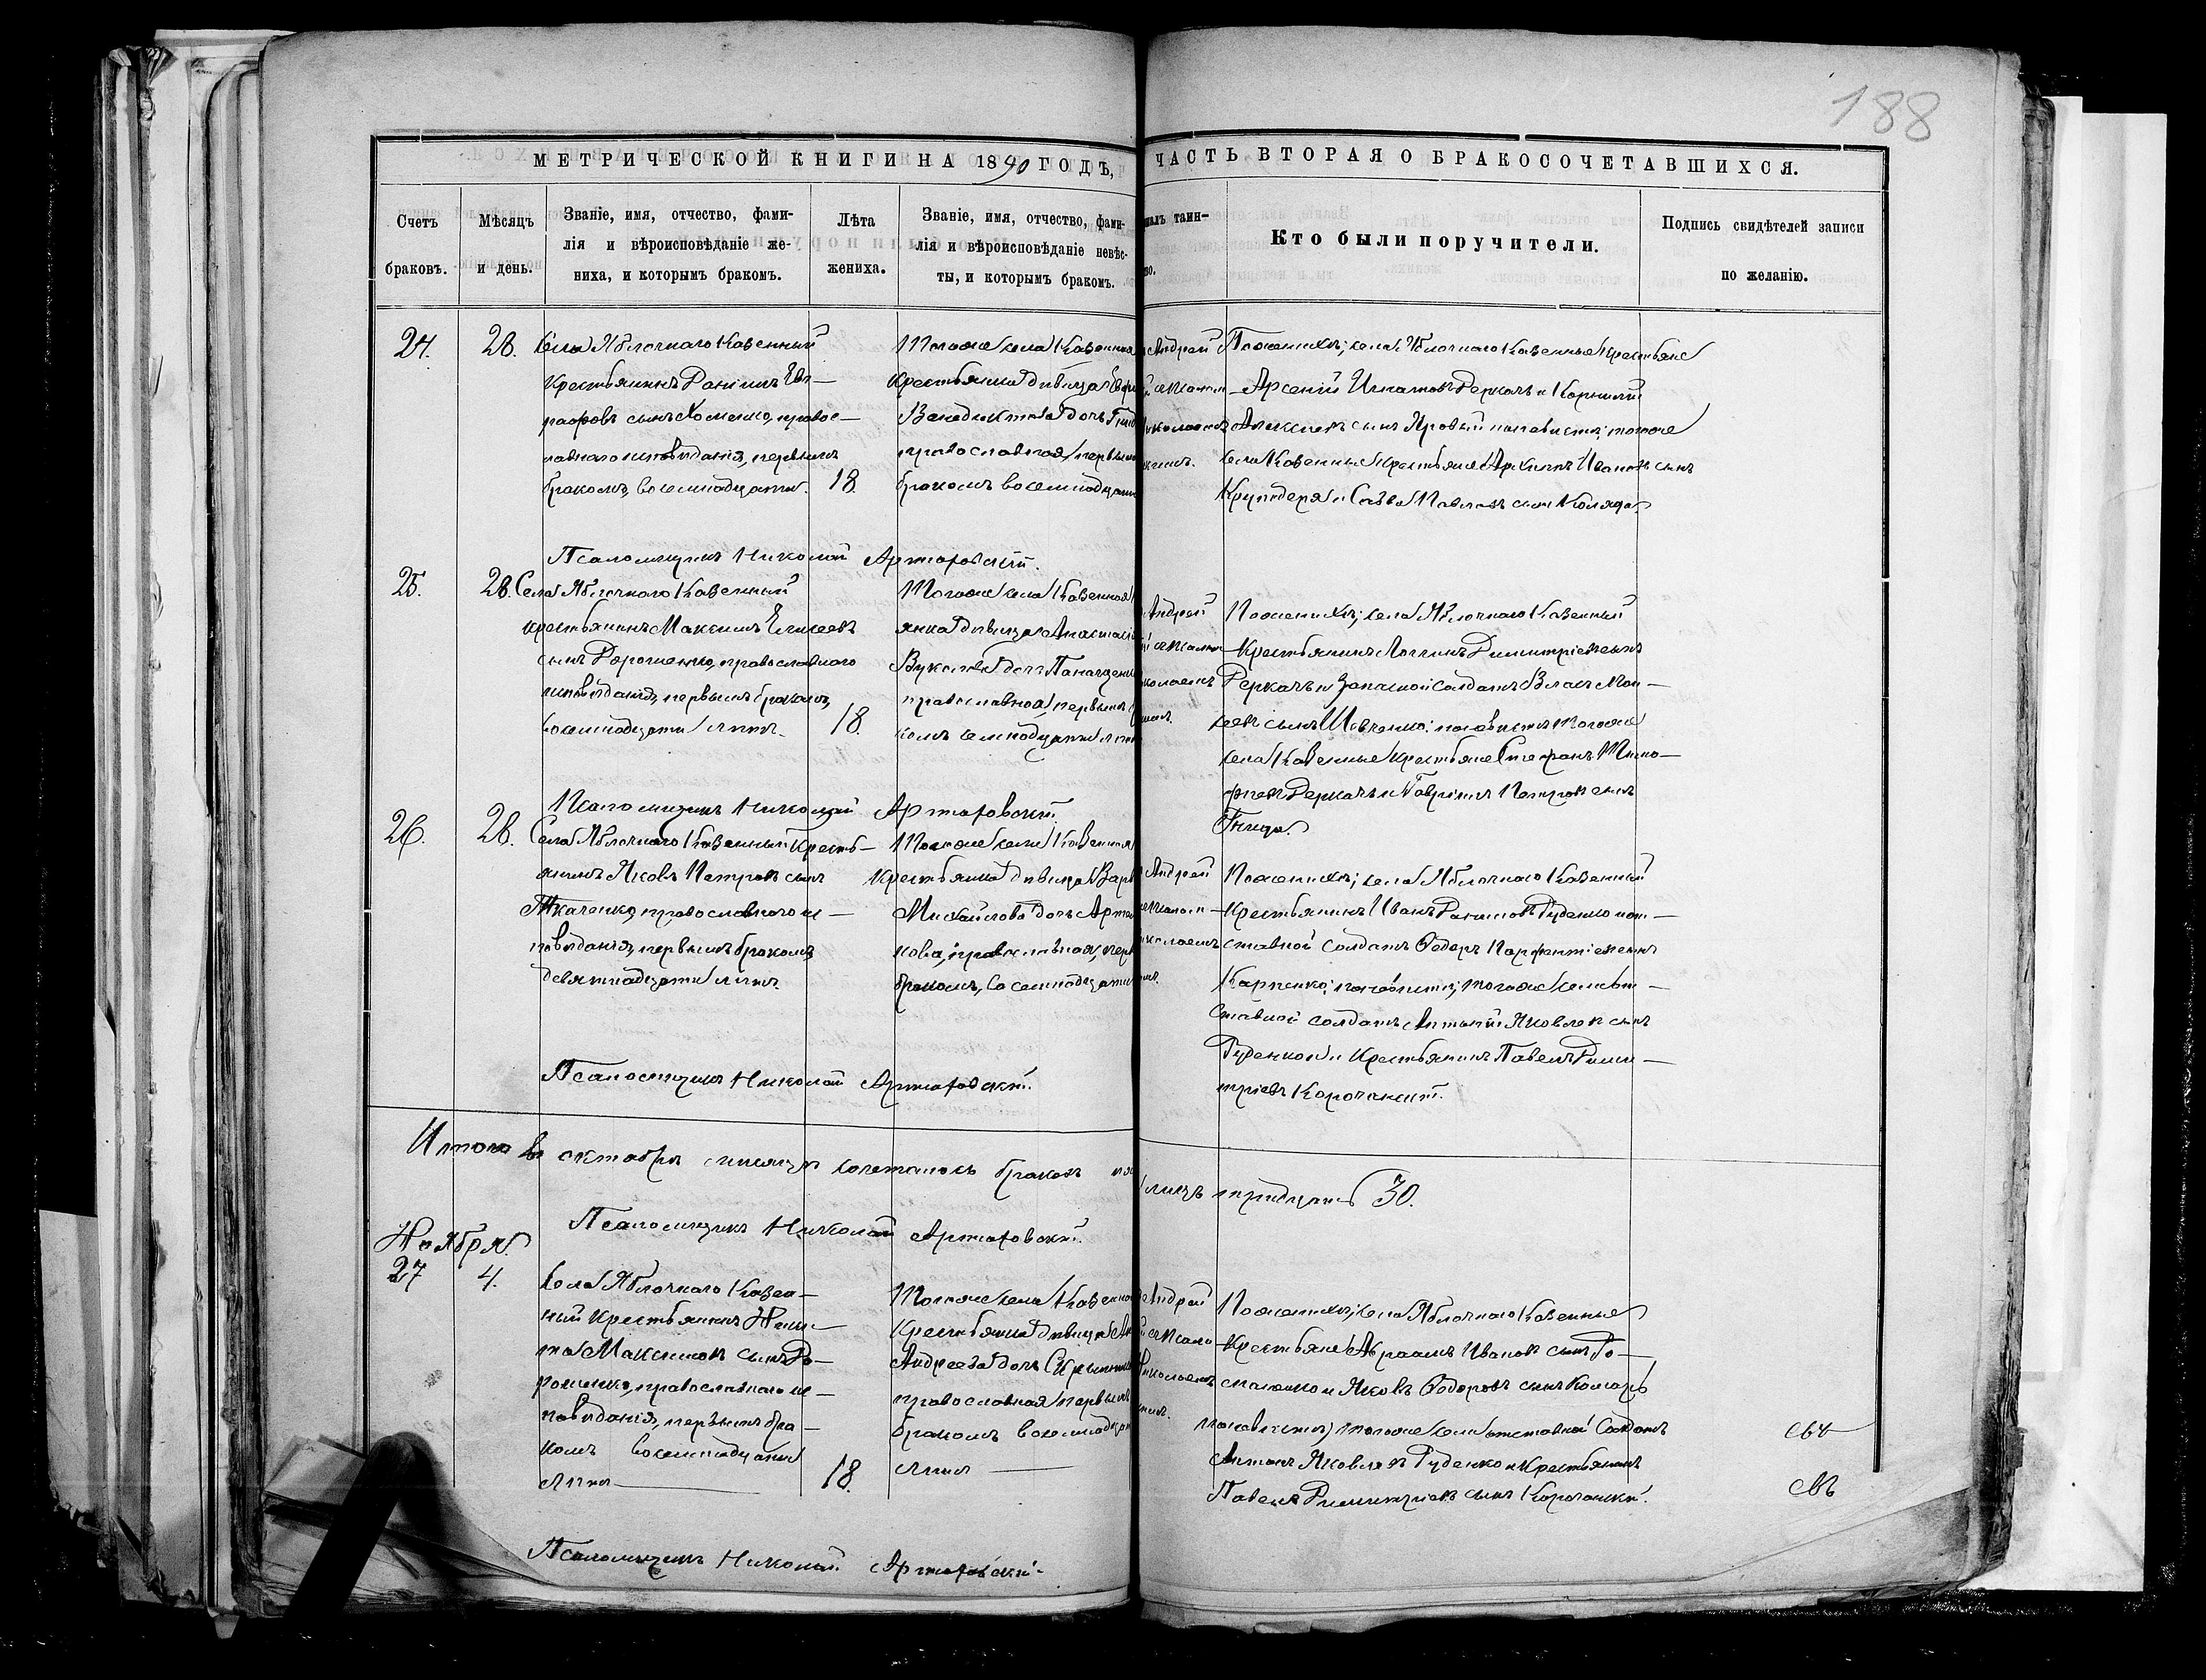 188
МЕТРИЧЕСКОЙ КНИГИ НА 1890 ГОДЪ,
ЧАСТЬ ВТОРАЯ О БРАКОСОЧЕТАВШИХСЯ.
Счетъ браковъ.
Мѣсяцъ и день.
Званіе, имя, отчество, фами-
лія и вѣроисповѣданіе же-
ниха, и которымъ бракомъ.
Лѣта
жениха.
Званіе, имя, отчество, фами-
лія и вѣроисповѣданіе невѣс-
ты, и которымъ бракомъ.
таин-
Кто были поручители.
Подпись свидѣтелей записи
по желанію.
24. 28.
Села Яблочнаго Казенный
Крестьянинъ Даніилъ Евг-
рафовъ сынъ Хоменко, правос-
лавнаго исповѣданія, первымъ
бракомъ, восемнадцати. 18.
Тогоже села Казенная
Крестьянка дѣвица
Венедиктова дочь
православная, первымъ
бракомъ восемнадцати
Андрей
По женихѣ; села Яблочнаго Казенные крестьяне
Арсеній Игнатовъ Деркачъ и Корнилій
Алексѣевъ сынъ Яровый по невѣстѣ; тогоже
села Казенные крестьяне Архипъ Ивановъ сынъ
Круподеря и Савва Павловъ сынъ Коляда.
Псаломщикъ Николай Артаховскій.
25. 28.
Села Яблочнаго Казенный
крестьянинъ Максимъ Елисеевъ
сынъ Дорошенко, православнаго
исповѣданія, первымъ бракомъ,
восемнадцати лѣтъ. 18.
Тогоже села Казенная
янка дѣвица Анастасія
дочь
православная, первымъ
комъ семнадцати лѣтъ
Андрей
По женихѣ; села Яблочнаго Казенный
Крестьянинъ Логгинъ Димитріевъ сынъ
Деркачъ и Запасной Солдатъ Власъ Мои-
сеевъ сынъ Шевченко: по невѣстѣ тогоже
села Казенные крестьяне Стефанъ Тимо-
фѣевъ Деркачъ и Гавріилъ Петровъ сынъ
Гнида.
Псаломщикъ Николай Артаховскій.
26. 28.
Села Яблочнаго Казенный Кресть-
янинъ Яковъ Петровъ сынъ
Ткаченко, православнаго ис-
повѣданія, первымъ бракомъ,
девятнадцати лѣтъ.
Тогоже села Казенная
Крестьянка дѣвица
Михайлова дочь
кова, православная,
бракомъ, восемнадцати
Андрей
По женихѣ; села Яблочнаго Казенный
Крестьянинъ Иванъ Даниловъ Руденко и от-
ставной Солдатъ Ѳедоръ Парфентіевъ сынъ
Карпенко; по невѣстѣ; тогоже села от-
ставной солдатъ Антоній Яковлевъ сынъ
Руденко и Крестьянинъ Павелъ Дими-
тріевъ Корочанскій.
Псаломщикъ Николай Артаховскій.
Итого въ октябрѣ мѣсяцѣ сочеталось браковъ
лицъ тридцать 30.
Псаломщикъ Николай Артаховскій.
Ноября.
27 4.
Села Яблочнаго Казен-
ный Крестьянинъ Ники-
та Максимовъ сынъ До-
рошенко, православнаго ис-
повѣданія, первымъ бра-
комъ восемнадцати
лѣтъ 18.
Тогоже села Казенная
Крестьянка дѣвица
Андреева дочь
православная первымъ
бракомъ восемнадцати
лѣтъ
Андрей
По женихѣ; села Яблочнаго Казенные
Крестьяне Авраамъ Ивановъ сынъ
и Яковъ Ѳедоровъ сынъ Комарь
по невѣстѣ; тогоже села отставной Солдатъ
Антонъ Яковлевъ Руденко и Крестьянинъ
Павелъ Димитріевъ сынъ Корочанскій.
Псаломщикъ Николай Артаховскій.